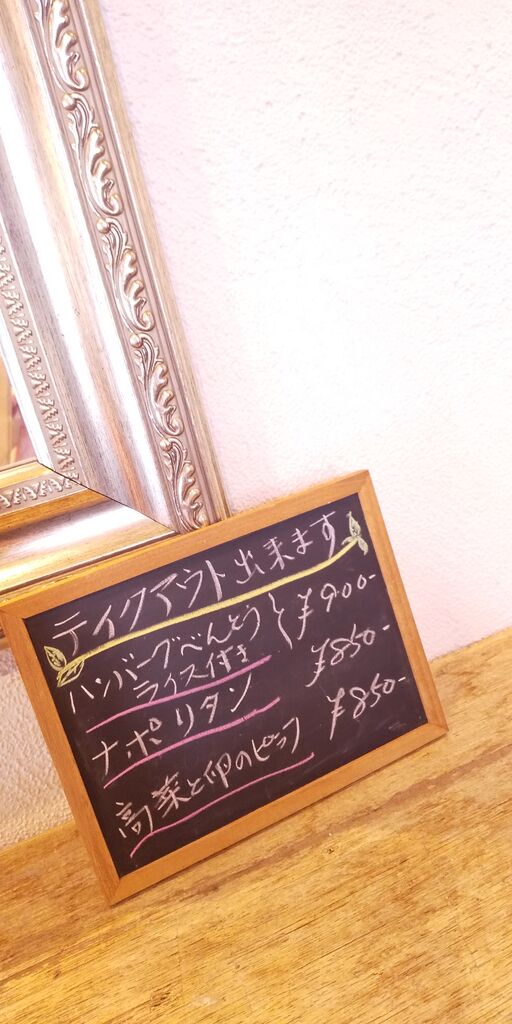 テイクアウト出来ます
ハンバーグべんとう } ¥900-
ライス付き
ナポリタン ¥850-
高菜と卵のピラフ ¥850-